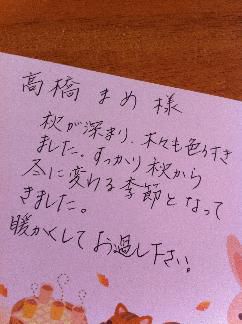 高橋 まめ 様
秋が深まり、木々も色づき
ました。すっかり秋から
冬に変わる季節となって
きました。
暖かくしてお過し下さい。